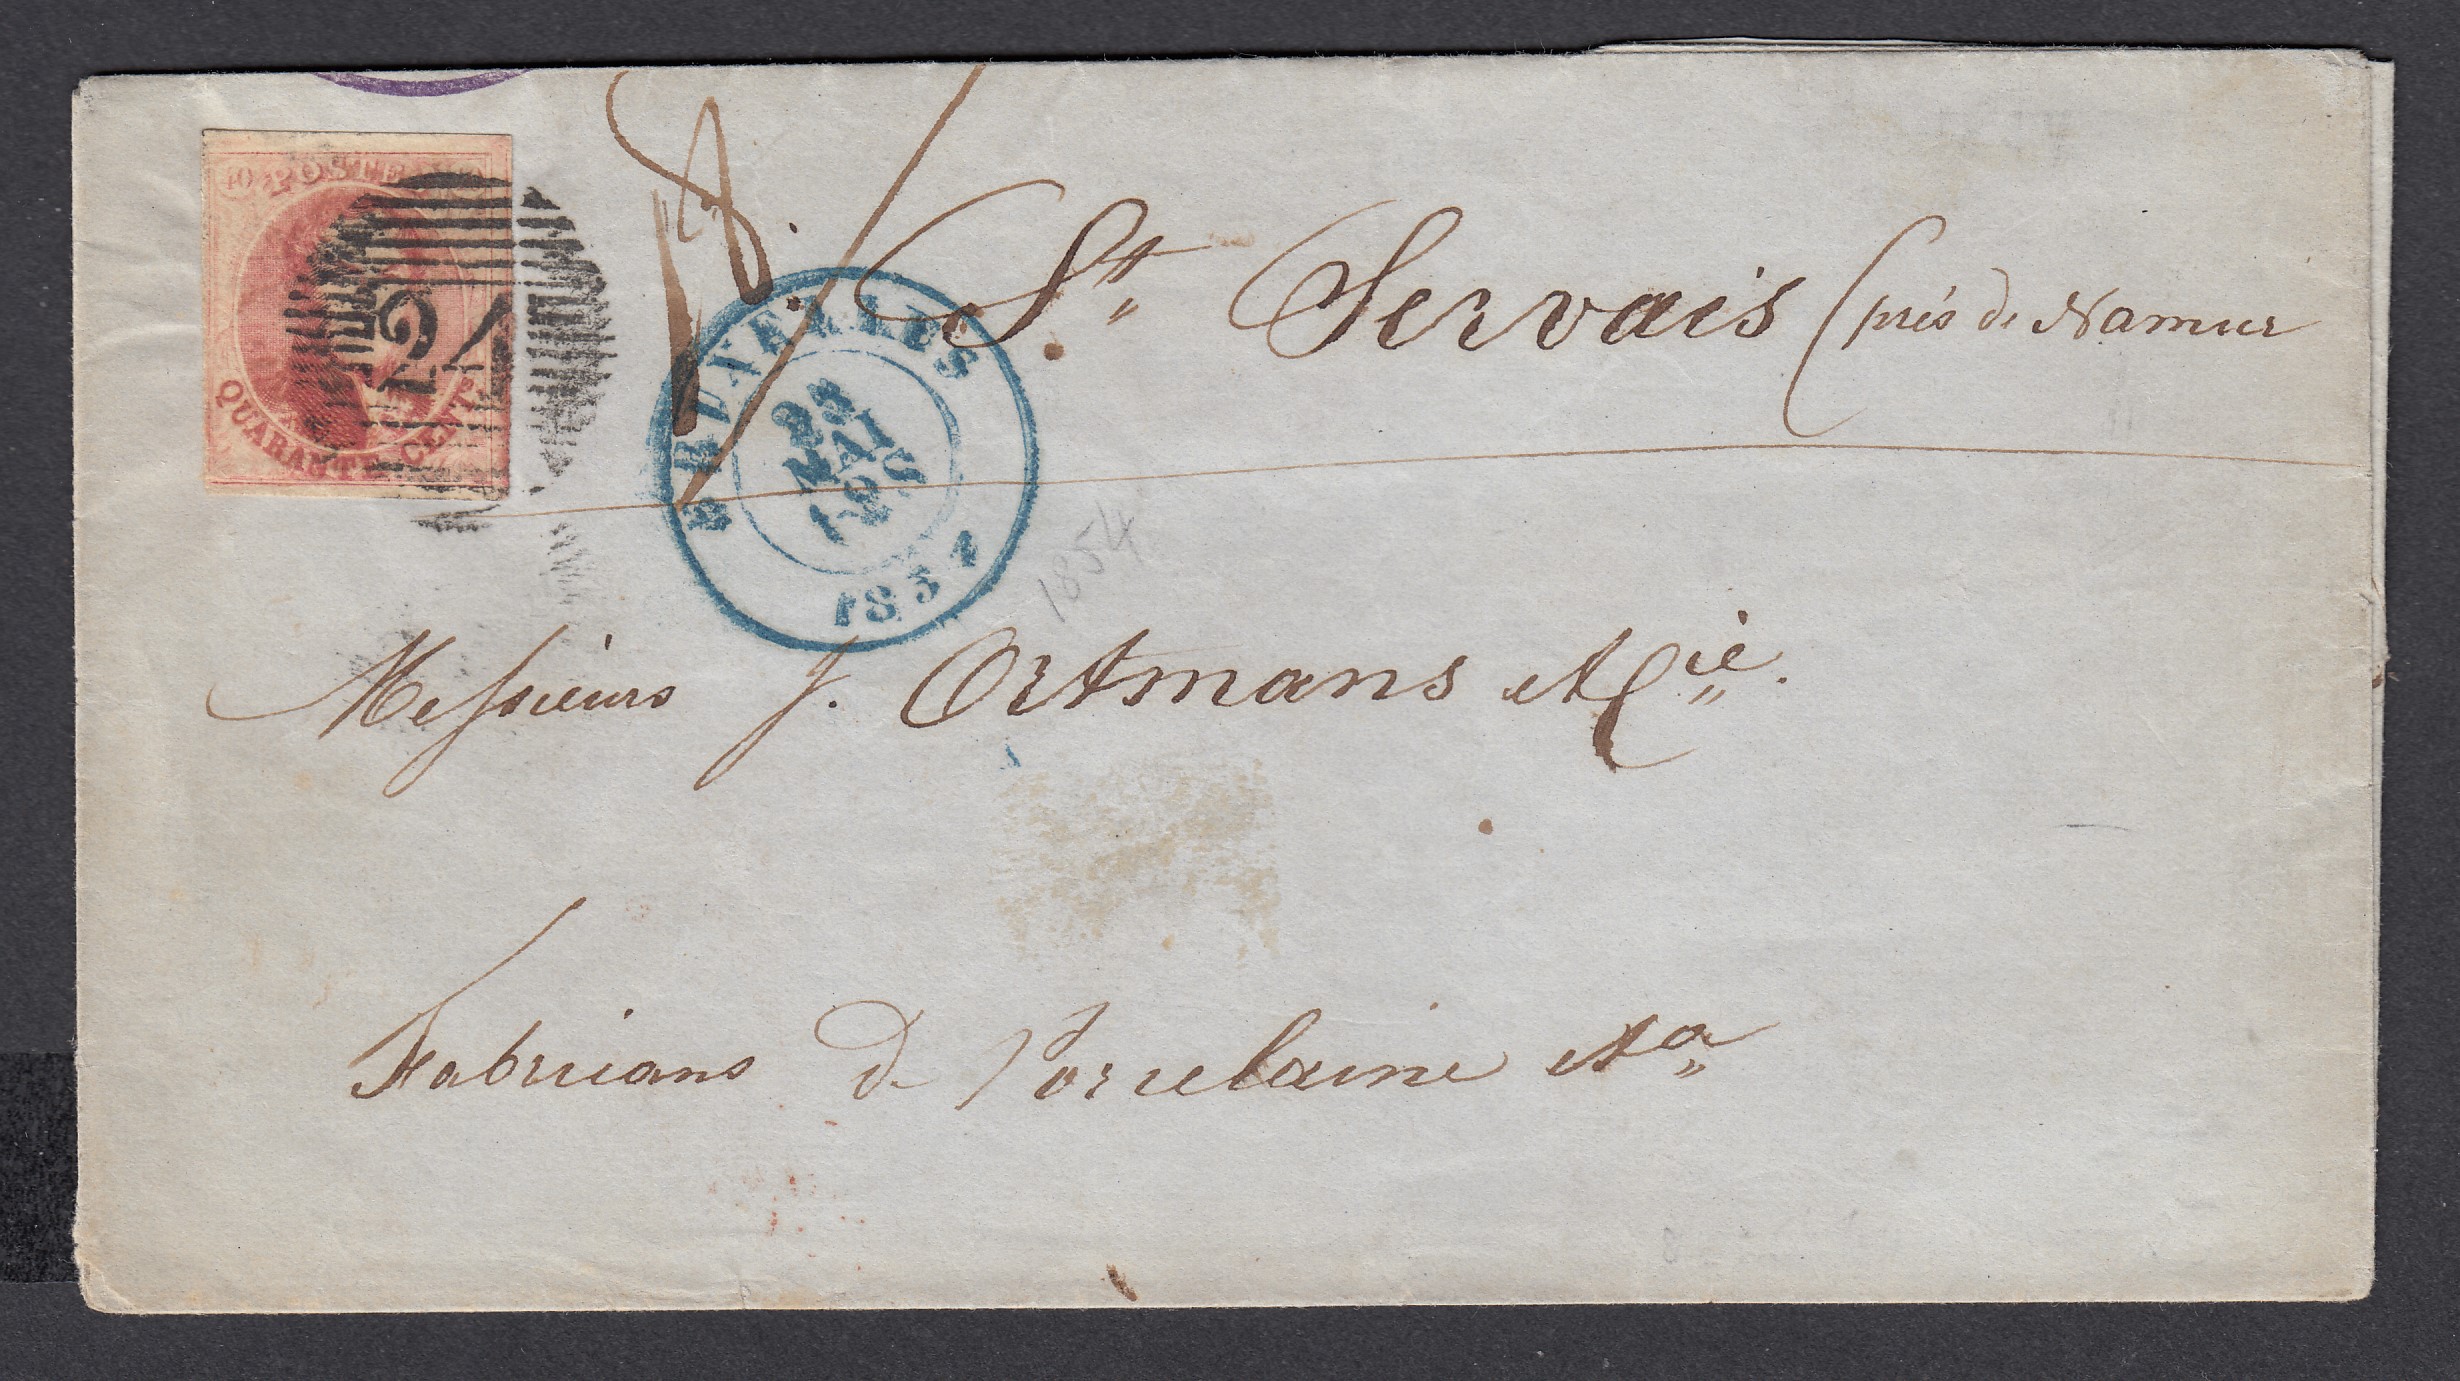 40 POSTES
24
QUARANTE CENTS
18.
BRUXELLES
23
MAI
12 S
1854
1854
St Servais (près de Namur
Messieurs J. Ortmans et Cie.
Fabricans de Porcelaine